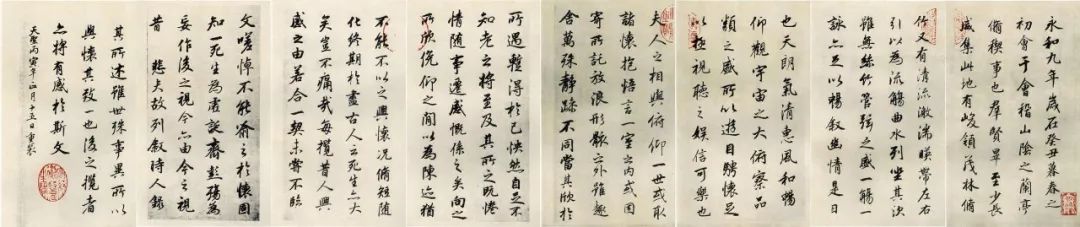 永和九年歲在癸丑暮春之
初會于會稽山陰之蘭亭
脩禊事也群賢畢至少長
咸集此地有峻領茂林脩
竹又有清流激湍暎帶左右
引以為流觴曲水列坐其次
雖無絲竹管弦之盛一觴一
詠亦足以暢叙幽情是日
也天朗氣清惠風和暢
仰觀宇宙之大俯察品
類之盛所以遊目騁懷足
以極視聽之娛信可樂也
夫人之相與俯仰一世或取
諸懷抱悟言一室之内或因
寄所託放浪形骸之外雖趣
舍萬殊靜躁不同當其欣於
所遇蹔得於己怏然自足不
知老之將至及其所之既惓
情隨事遷感慨係之矣向之
所欣俛仰之閒以為陳迹猶
不能不以之興懷況脩短隨
化終期於盡古人云死生亦大
矣豈不痛哉每攬昔人興
感之由若合一契未嘗不臨
文嗟悼不能喻之於懷固
知一死生為虛誕齊彭殤為
妄作後之視今亦由今之視
昔 悲夫故列叙時人錄
其所述雖世殊事異所以
興懷其致一也後之攬者
亦將有感於斯文
天聖丙寅年正月十五日重裝